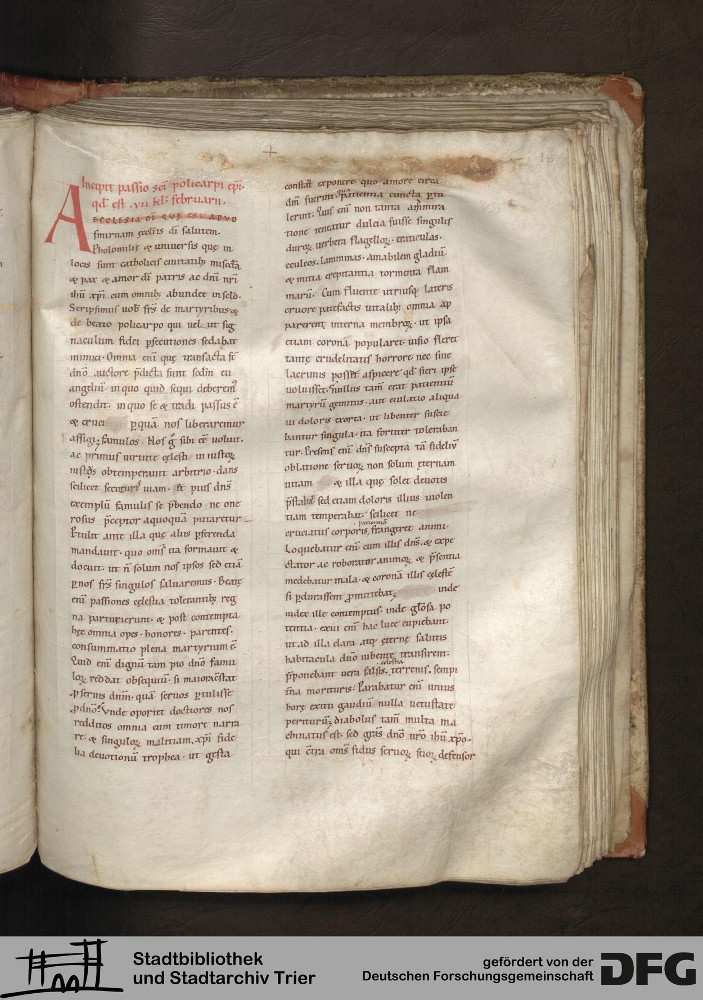 Incipit passio sci policarpi epi·
qd est ·vii kl· februarii·
A ECCLESIA DI QVE EST APVD
smirnam ecclis di salutem·
Pholomilis & uniuersis que in
locis sunt catholicis ciuitatib; miscda
& pax & amor di patris ac dni nri
ihu xpi eum omnib; abundet in sclo·
Scripsimus uob frs de martyribus &
de beato policarpo qui uelut sig
naculum fidei psecutiones sedabat
inimici· Omnia eni que transacta st
dno auctore pdicta sunt sedm eu
angeliu in quo quid sequi deberem
ostendit· in quo se & tradi passus e
& cruci pqua nos liberaremur
affigi famulos· Nos g sibi ee uoluit·
ac primus uirtute celesti in iustos
iustos obtemperant arbitrio· dans
scilicet uiam· & pius dns
exemplu famulis se pbendo ne one
rosus pceptor aquoqua putaretur·
Ptulit ante illa que aliis pferenda
mandauit· quo oms ita formauit &
docuit· ut n solum nos ipsos sed etia
p nos frs singulos saluaremus· Beate
eni passiones celestia tolerantib; reg
na parturierunt· & post contempta
hec omnia opes· honores· parentes·
consummatio plena martyrium e·
Quid eni dignu tam pio dno famu
loz reddat obsequiu· si maioraestat
p seruis dnm· qua seruos ptulisse
p dno· Vnde oportet doctores nos
redditos omnia cum timore narra
re· & singuloz malitiam· xpi fide
lia deuotionu trophea· ut gesta
constat exponere quo amore circa
dm fuerint patientia cuncta ptu
lerunt· Quis eni non tanta ammira
tione teneatur dulcia fuisse singulis
duroz uerbera flagelloz· craticulas·
eculeos· lamminas· amabilem gladiu
& mitia crepitantia tormenta flam
maru· Cum fluente utriusq; lateris
cruore patefactis uitalib; omnia ap
parerent interna membroz· ut ipsa
etiam corona popularet uisio fleret
tante crudelitatis horrore nec sine
lacrimis posset aspicere qd fieri ipse
uoluisset· nullus tam erat patientiu
martyru gemitus· aut eiulatio aliqua
ui doloris extorta· ut libenter suscie
bantur singula· ita fortiter toleraban
tur· Presens eni dns suscepta ta fideliu
oblatione seruoz non solum eternam
uitam & illa que solet deuotis
pstabat sed etiam doloris illius uiolen
tiam temperabat· scilicet ne
cruciatus corporis frangeret animi·
Loquebatur eni cum illis dns· & expe
ctator ac roborator animoz & psentia
medebatur mala· & corona illis celeste
si pdurassent pmittebat· inde
iudex ille contemptus· inde glosa po
tentia· exui eni hac luce cupiebant·
ut ad illa clara atq; eterne salutis
habitacula dno iubente transirent·
pponebant uera falsis· celestia terrenis· sempi
tna morituris· Parabatur eni unius
hore exitu gaudiu nulla uetustate
periturum· diabolus tam multa ma
chinatus est· sed gras dno nro ihu xpo·
qui ctra oms fidus seruoz suoz defensor
Stadtbibliothek
und Stadtarchiv Trier
gefördert von der
Deutschen Forschungsgemeinschaft
DFG